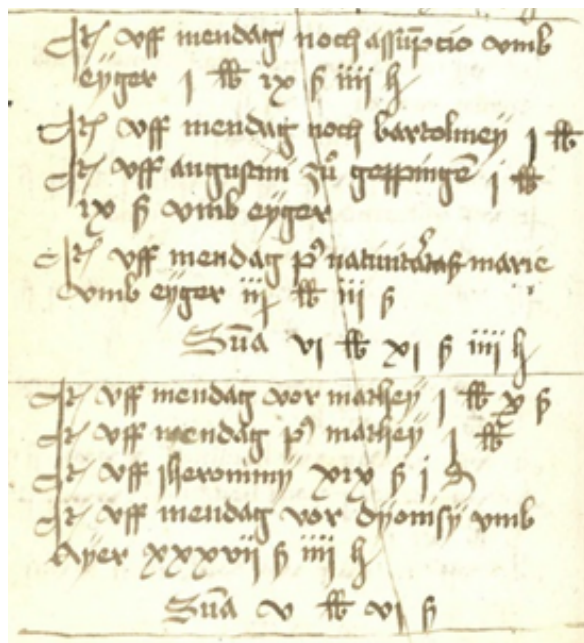 It vff mendag noch assūptio vmb
eyger j lb ix ß iiii h
It vff mendag noch bartolmeij j lb
It vff augustini zů geppingē j lb
ix ß vmb eyger
It vff mendag p9 natiuitatis marie
vmb eyger iij lb iii ß
Sūa vi lb xi ß iiii h
It vff mendag vor matheij j lb x ß
It vff mendag p9 matheij j lb
It vff iheronimij xix ß j d
It vff mendag vor dyonisij vmb
Ayer xxxvii ß iiii h
Sūa v lb vi ß